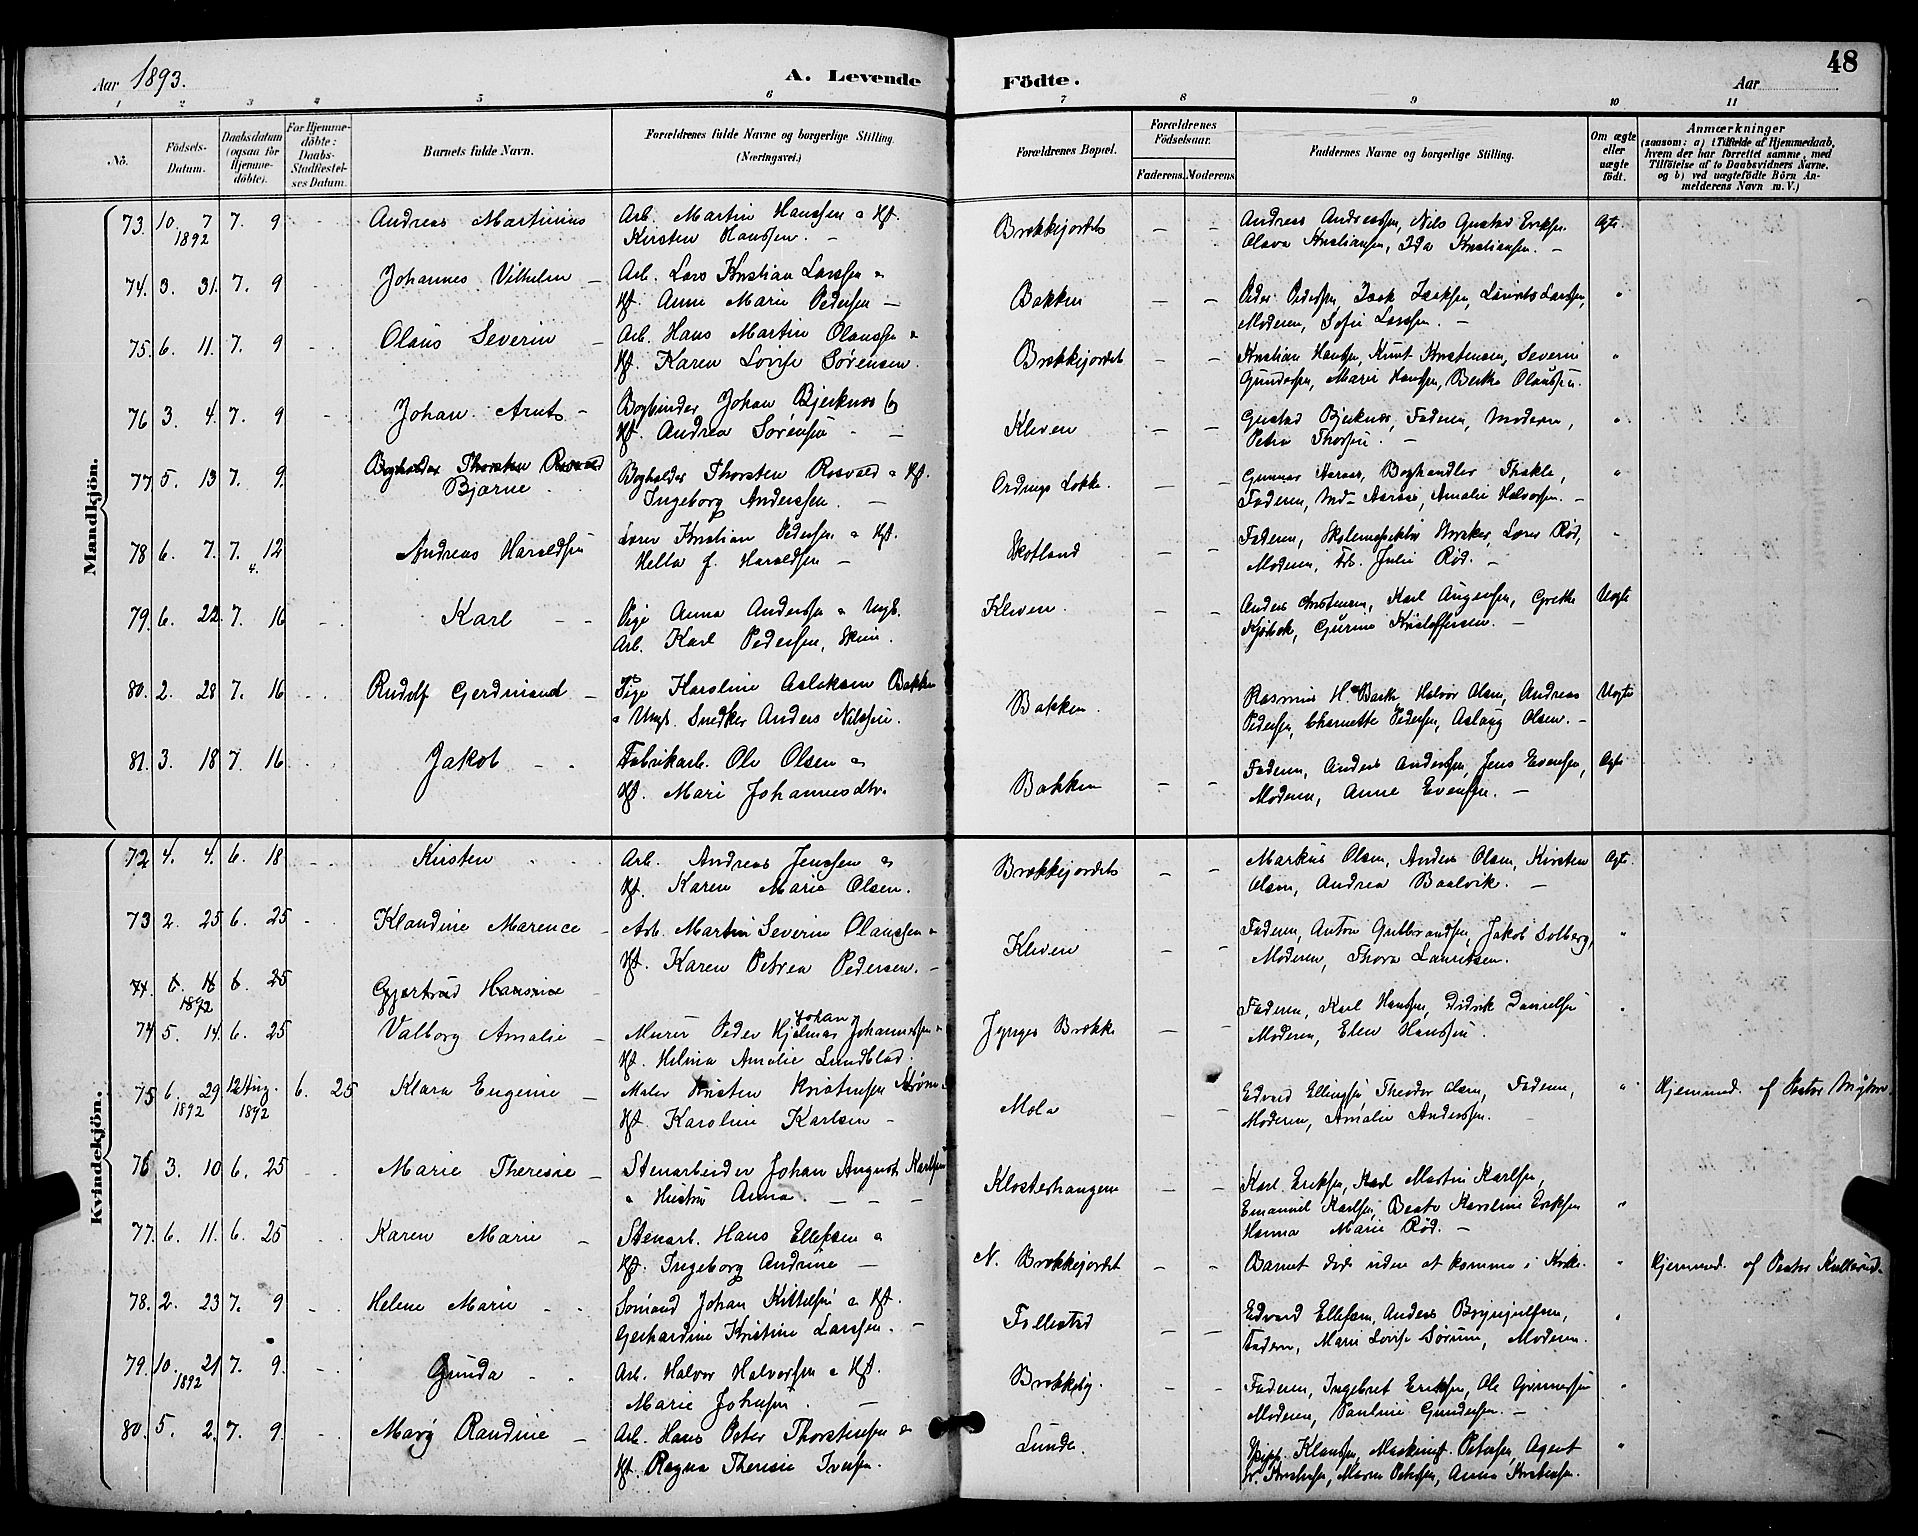 48
Aar 1893.
A. Levende Födte.
Aar
1 2 3 4 5 6 7 8 9 10 11
No.
Födsels-Datum.
Daabsdatum (ogsaa for Hjemme-döbte).
For Hjemme-döbte: Daabs-Stadfæstel-ses Datum.
Barnets fulde Navn.
Forældrenes fulde Navne og borgerlige Stilling. (Næringsvei.)
Forældrenes Bopæl.
Forældrenes Födselsaar.
Faderens. Moderens.
Faddernes Navne og borgerlige Stilling.
Om ægte eller uægte födt.
Anmærkninger
(saasom: a) i Tilfælde af Hjemmedaab, hvem der har forrettet samme, med Tilföielse af to Daabsvidners Navne. og b) ved uægtefödte Börn An-melderens Navn m. V.)
Mandkjön.
73. 10. 7 1892 7. 9 Andreas Martinius Arb. Martin Hanssen &
Hf. Kirsten Hanssen. Brækkejordet Andreas Andreassen, Nils Gustav Eriksen
Olava Kristiansen, Ida Kristiansen. Ægte
74. 3. 31. 7. 9 Johannes Vilhelm Arb. Lars Kristian Larssen &
Hf. Anne Marie Pedersen Bakken Peder Pedersen, Isak Isaksen, Laurits Larssen,
Moderen, Sofie Larssen. "
75. 6. 11. 7. 9 Olaus Severin Arb. Hans Martin Olaussen &
Hf. Karen Lovise Sørensen. Brækkejordet Kristian Hanssen, Knut Kristensen, Severin
Gundersen, Marie Hanssen, Berthe Olaussen. "
76 3. 4. 7. 9 Johan Arnt Bogbinder Johan Bjerknes og
Hf. Andrea Sørensen Kleven Gustav Bjerknes, Faderen, Moderen,
Petra Thorsen. "
77 5. 13 7. 9. Bogholder Thorsten Rosvold
Bjarne Bogholder Thorsten Rosvold & Hf.
Ingeborg Anderssen. Ordrups Løkke. Gunnar Aaraas, Boghandler Thekle,
Faderen, Aaraas, Amalie Halvorsen. "
78 6. 7. 7. 12 Andreas Haraldsen Lærer Kristian Pedersen & Hf.
Hella J. Haraldsen Skotland Faderen, Lærer Rød,
Moderen, Frk. Julie Rød. "
79. 6. 22. 7. 16 Karl Pige Anna Anderssen & Ungk.
Arb. Karl Pedersen, Skien. Kleven. Anders Kristensen, Karl Gurine Kristoffersen. Uægte
80. 2. 28 7. 16 Rudolf Gerdinand Pige Karoline Aslaksen Bakken
& Ungk. Snedker Anders Nilssen. Bakken. Rasmus H. Bakke, Halvor Olsen, Andreas
Pedersen, Charnette Pedersen, Aslaug Olsen. Uægte
81. 3. 18 7. 16 Jakob Fabrikarb. Ole Olsen &
Hf. Mari Johannesdtr. Bakken Faderen, Anders Anderssen, Jens Evensen,
Moderen, Anne Evensen. Ægte
Kvindekjön.
72 4. 4. 6. 18 Kirsten Arb. Andreas Jenssen &
Hf. Karen Marie Olsen. Brækkejordet Markus Olsen, Anders Olsen, Kirsten
Olsen, Andrea Baalvik. Ægte
73 2. 25 6. 25 Klaudine Marence Arb. Martin Severin Olaussen &
Hf. Karen Petrea Pedersen. Kleven Faderen, Anton Gulbrandsen, Jakob Solberg,
Moderen, Thora Lauritsen. "
74. 6. 16 1892 6. 25 Gjertrud Hansine
74 5. 14. 6. 25 Valborg Amalie Murer Peder Hjalmar Johan Johannessen &
Hf. Helma Amalie Lundblad. Jynges Brække Faderen, Karl Hanssen, Didrik Danielsen
Moderen, Elen Hanssen. "
75 6. 29 1892 12 Aug. 1892 6. 25 Klara Eugenie Maler Kristen Kristensen Strøm &
Hf. Karoline Karlsen Mæla Edvard Ellingsen, Theodor Olsen, Faderen,
Moderen, Amalie Anderssen. " Hjemmed. af Pastor
76 3. 10 6. 25 Marie Theresie Stenarbeider Johan August Karlsen
& Hustru Anna Klosterhaugene Karl Eriksen, Karl Martin Karlsen,
Emanuel Karlsen, Beate Karoline Eriksen
Hanna Marie Rød. "
77. 6. 11. 6. 25 Karen Marie Stenarb. Hans Ellefsen &
Hf. Ingeborg Andrine N. Brækkejordet Barnet døde uden at komme i Kirke. " Hjemmed. af Pastor Kullerud.
78. 2. 23 7. 9 Helene Marie Sømand Johan Kittilsen & Hf.
Gerhardine Kristine Larssen. Follestad Edvard Ellefsen, Anders Brynjulfsen,
Faderen, Marie Lovise Sørum, Moderen. "
79. 10. 21 1892 7. 9. Gunda Arb. Halvor Halvorsen & Hf.
Marie Johnsen. Brækkeby. Faderen, Ingebret Eriksen, Ole Gunnersen
Moderen, Pauline Gundersen. "
80. 5. 2. 7. 9. Mary Randine Arb. Hans Peter Thorstensen &
Hf. Ragna Theresie Iversen. Lunde. Skipp. Klaussen, Maskinist Petersen, Agent
Maren Petersen, Anna Kristensen. "